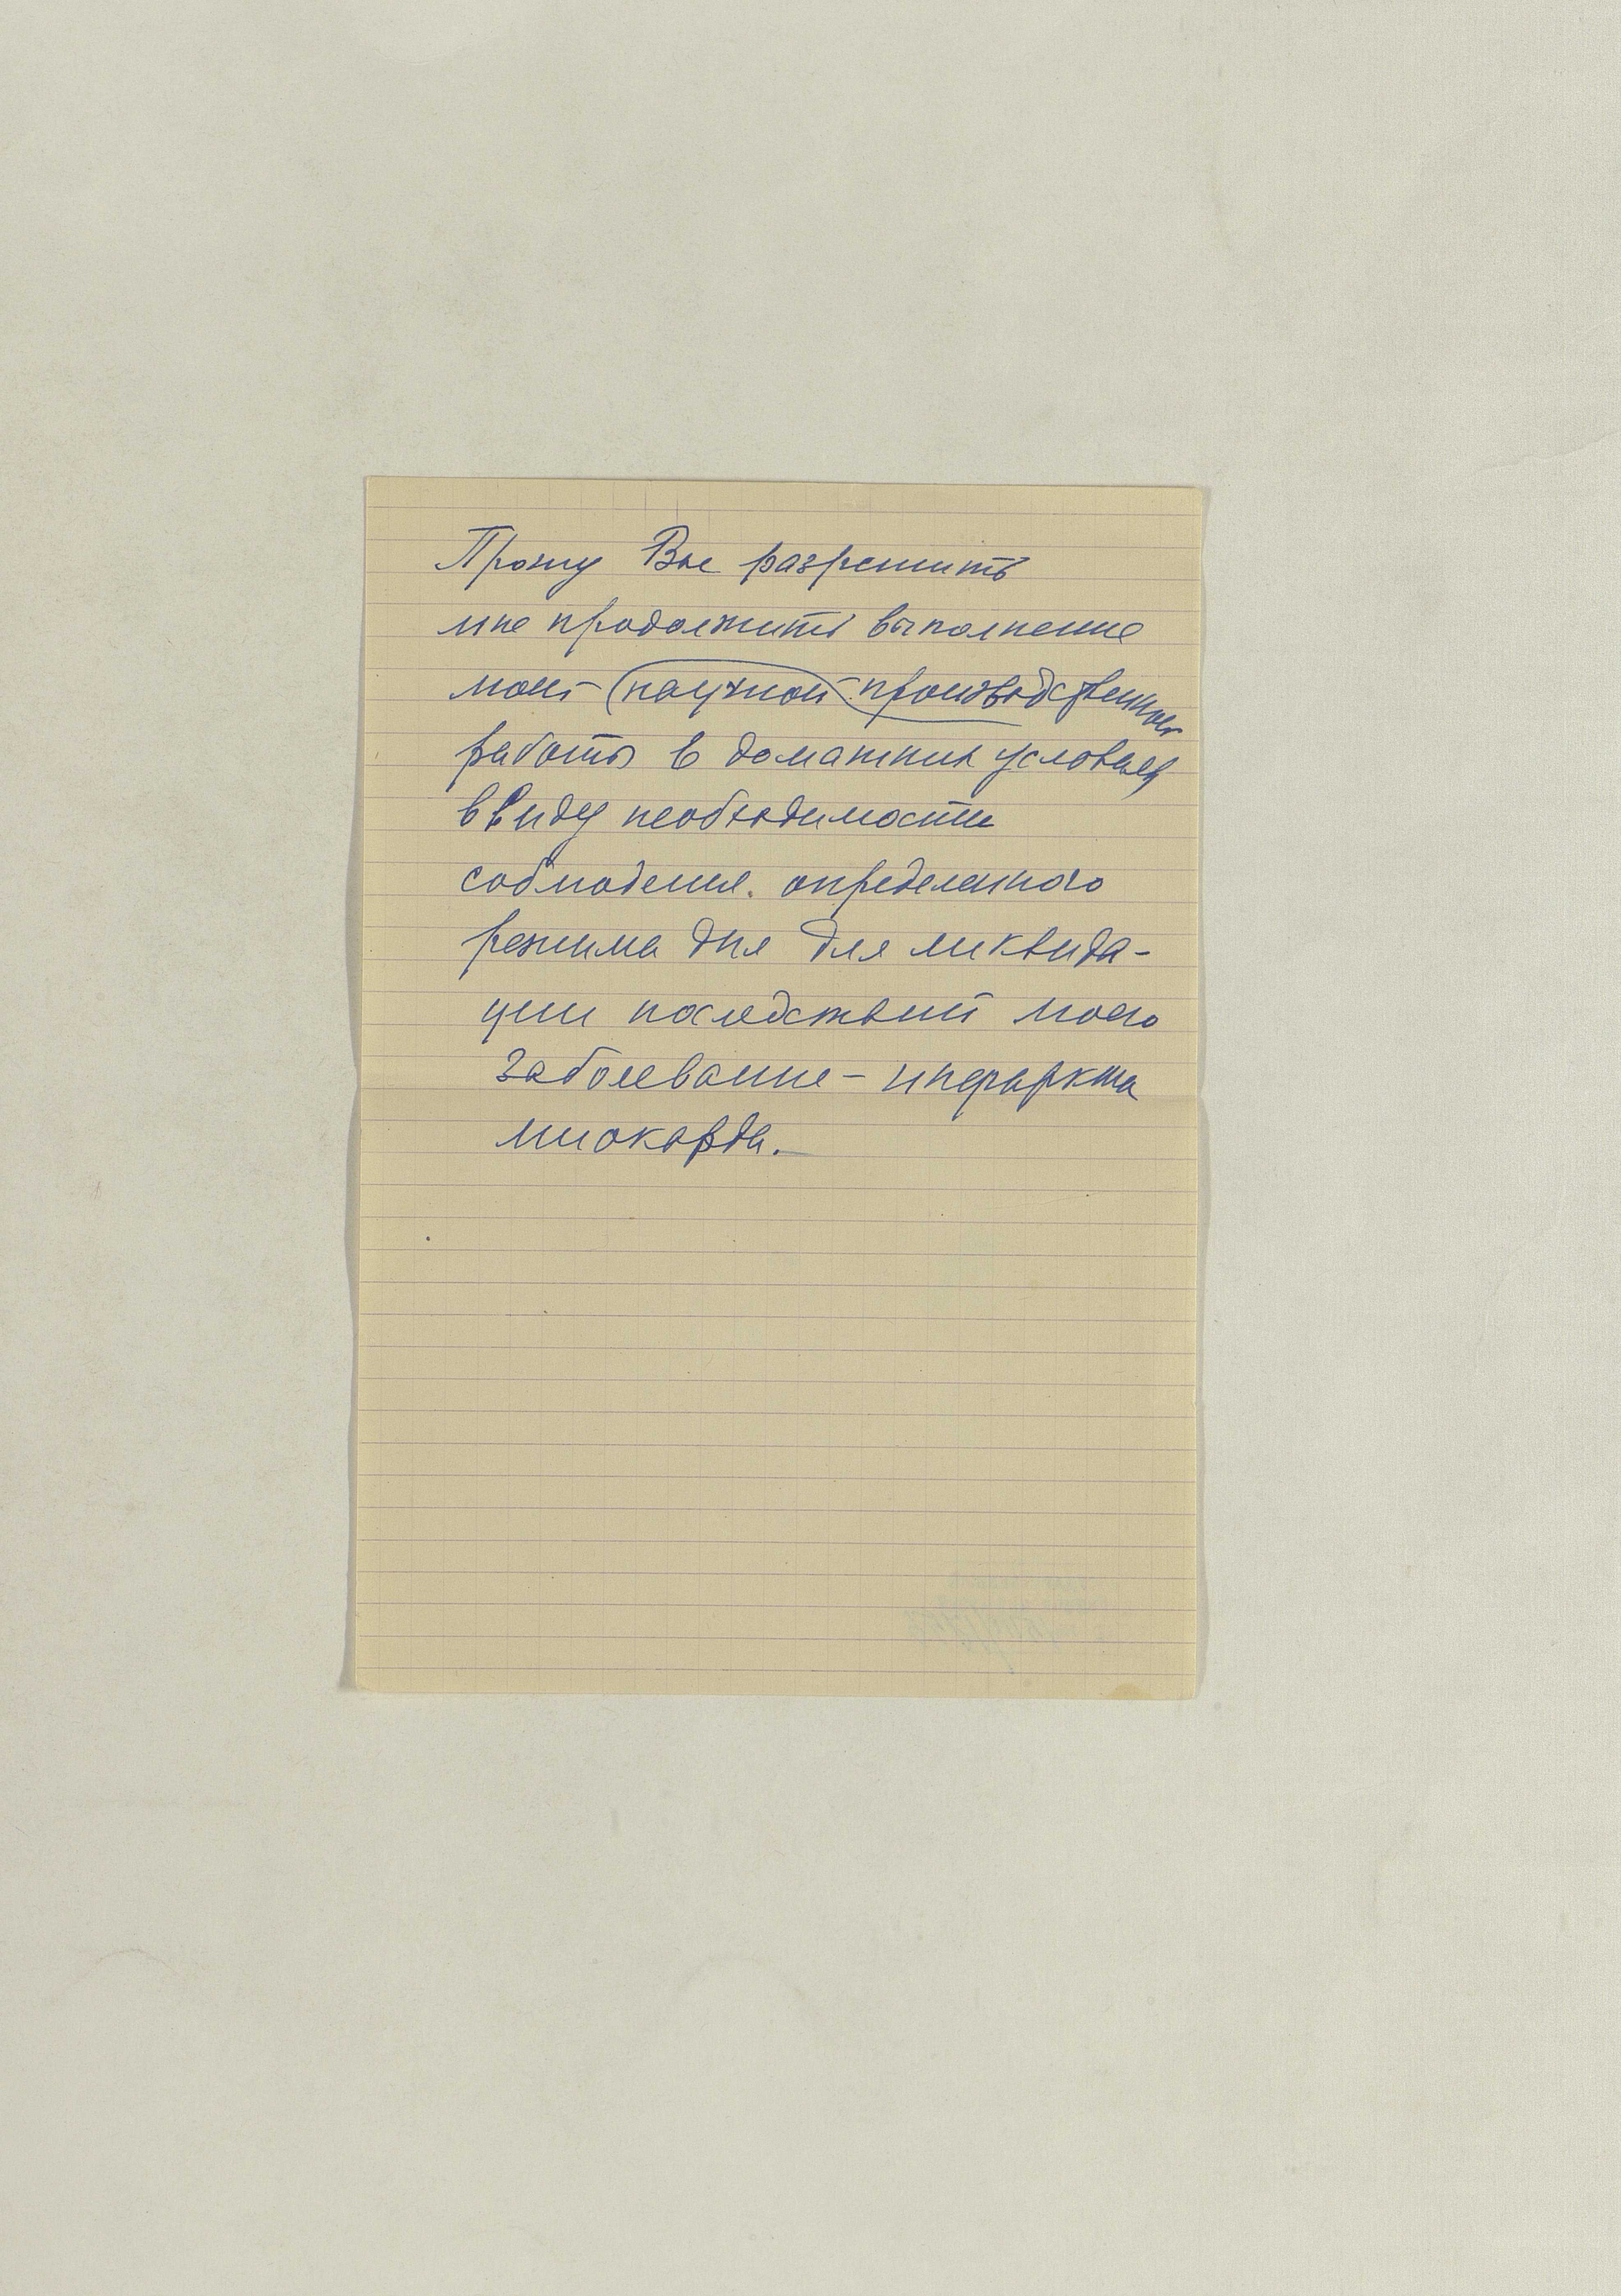 Прошу Вас разрешить
мне продолжить выполнение
моей научной производственной
работы в домашних условиях
ввиду необходимости
соблюдения определенного
режима дня для ликвида-
ции последствий моего
заболевание - инфаркта
миокарда.